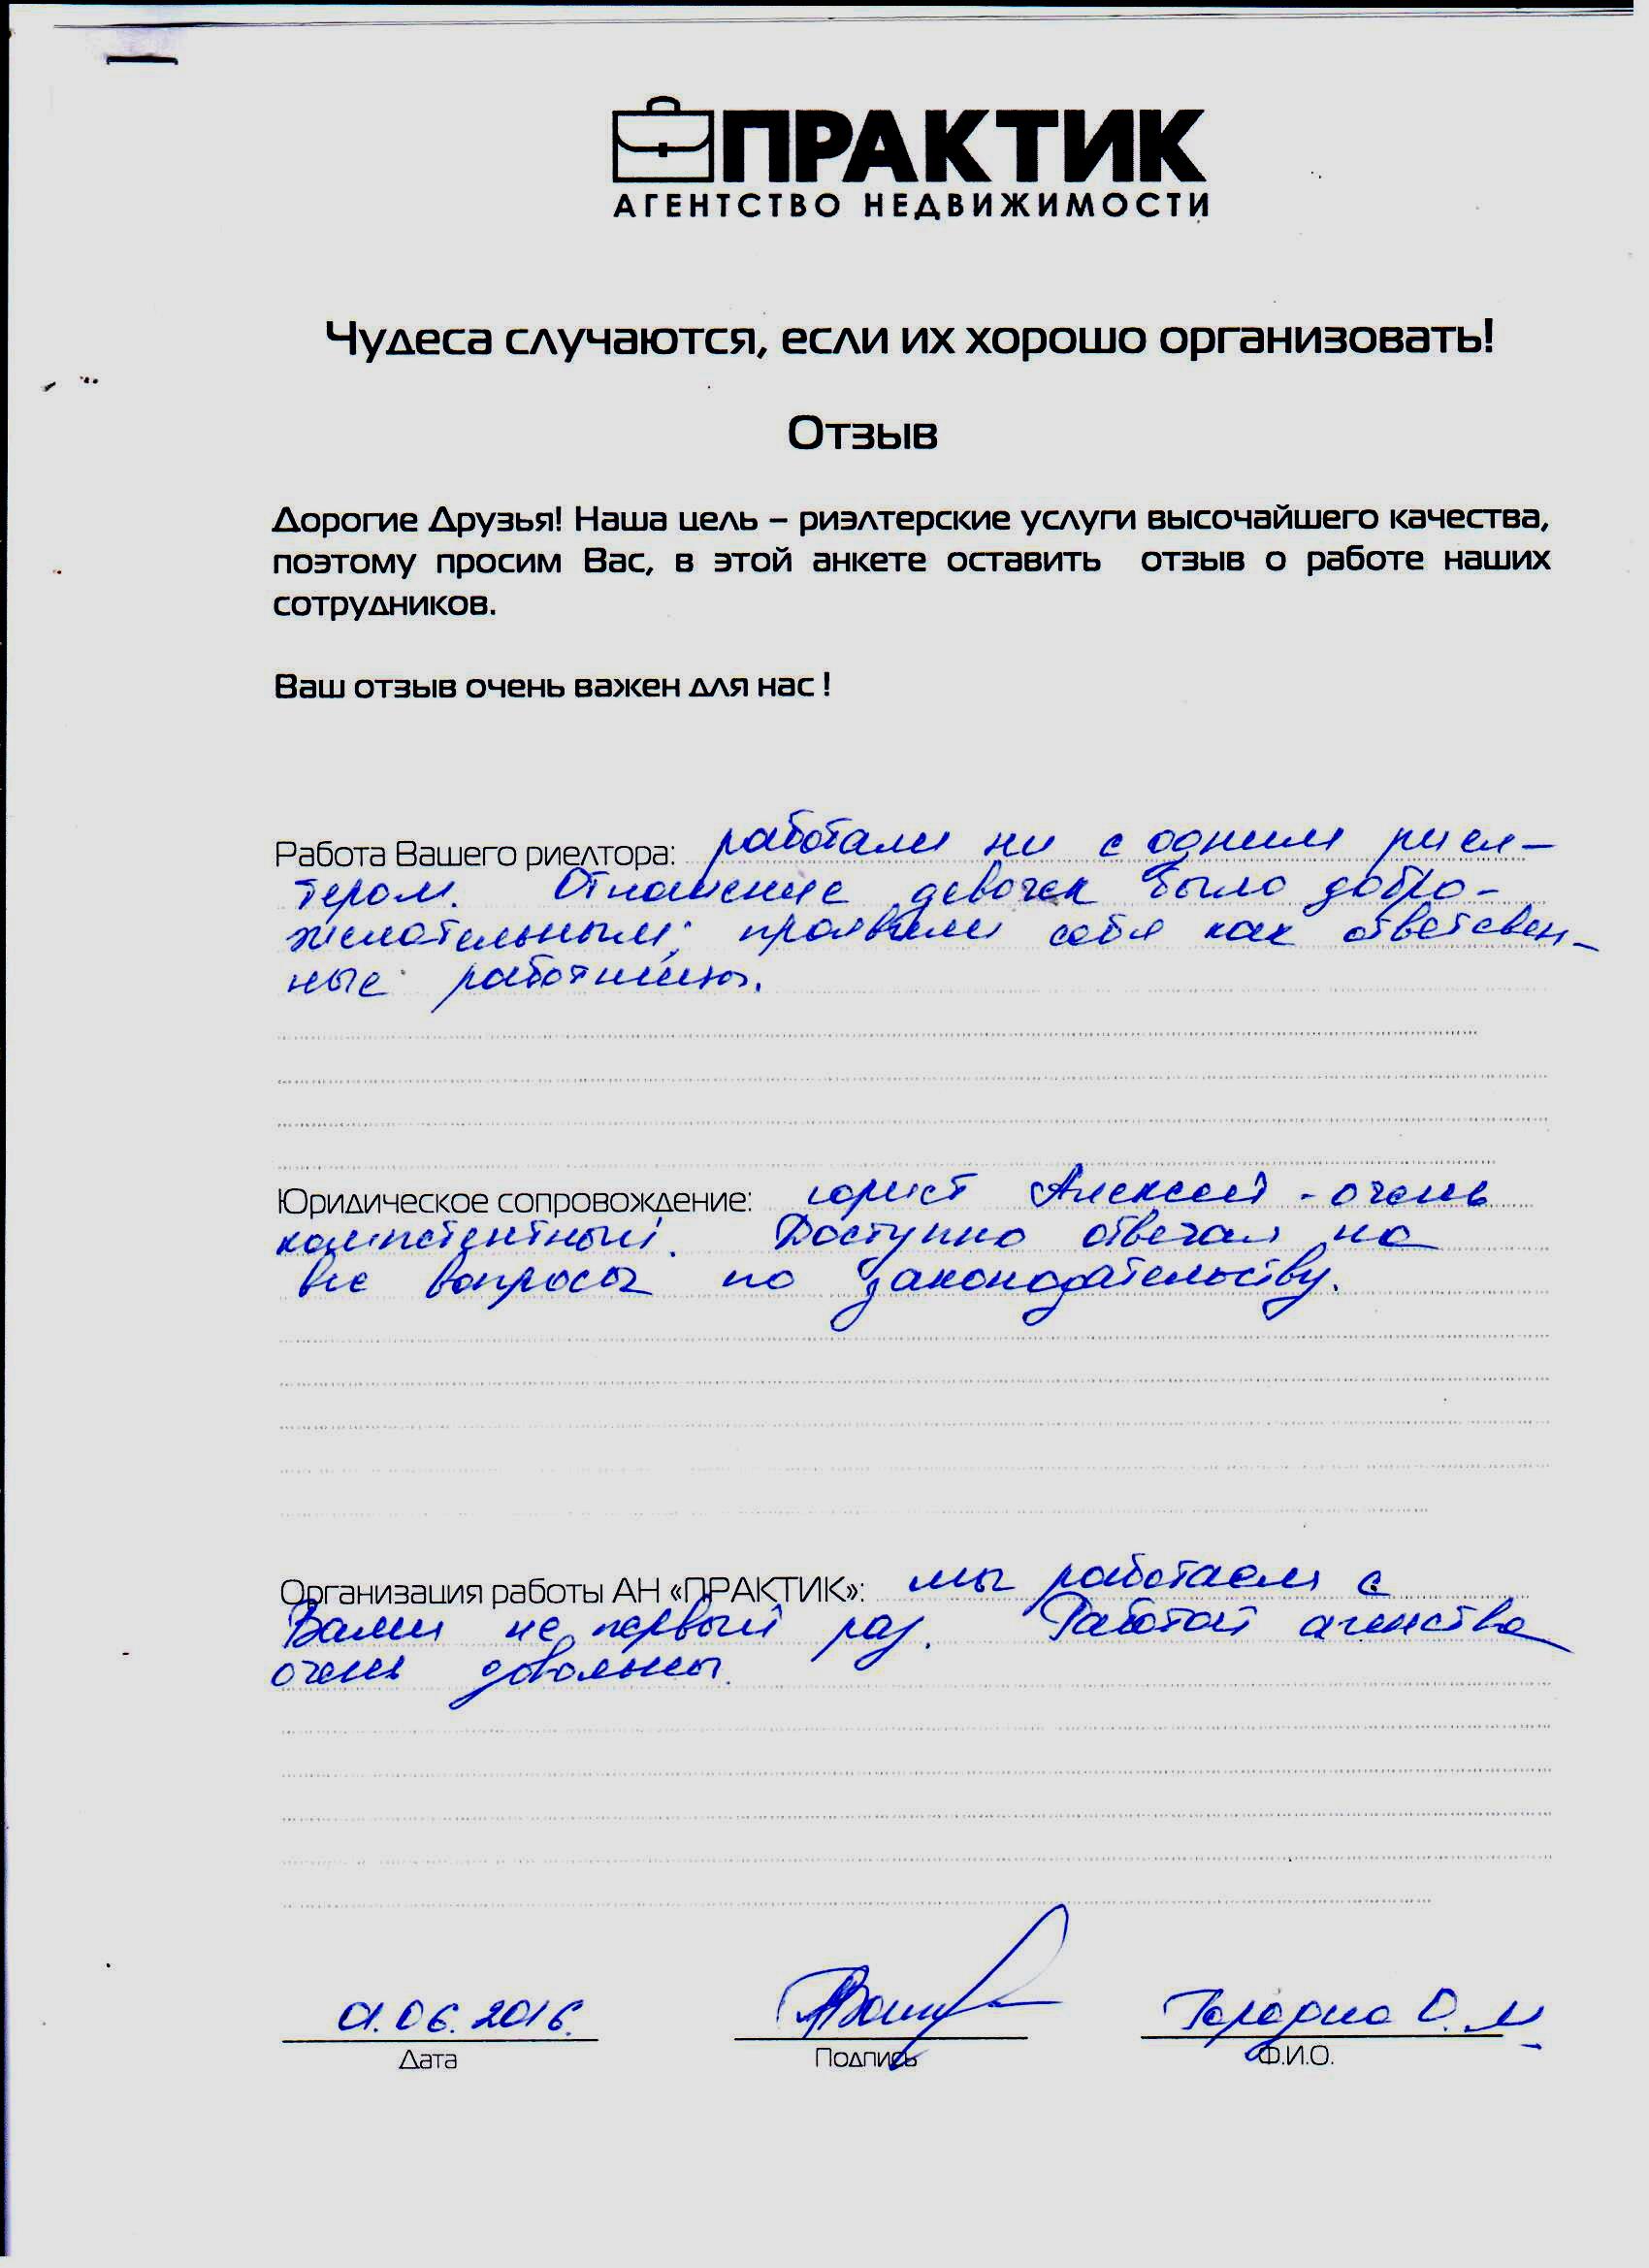 ПРАКТИК
АГЕНТСТВО НЕДВИЖИМОСТИ
Чудеса случаются, если их хорошо организовать!
Отзыв
Дорогие Друзья! Наша цель – риэлтерские услуги высочайшего качества,
поэтому просим Вас, в этой анкете оставить отзыв о работе наших
сотрудников.
Ваш отзыв очень важен для нас !
Работа Вашего риелтора: работали ни с одним риел-
тером. Отношение девочек было добро-
желательным; проявили себя как ответсвен-
ные работницы.
Юридическое сопровождение: юрист Алексей - очень
компетентный. Доступно отвечал на
все вопросы по законодательству.
Организация работы АН «ПРАКТИК»: мы работаем с
Вами не первый раз. Работой агенства
очень довольны.
01.06.2016.
Дата
Подпись
О.М
Ф.И.О.